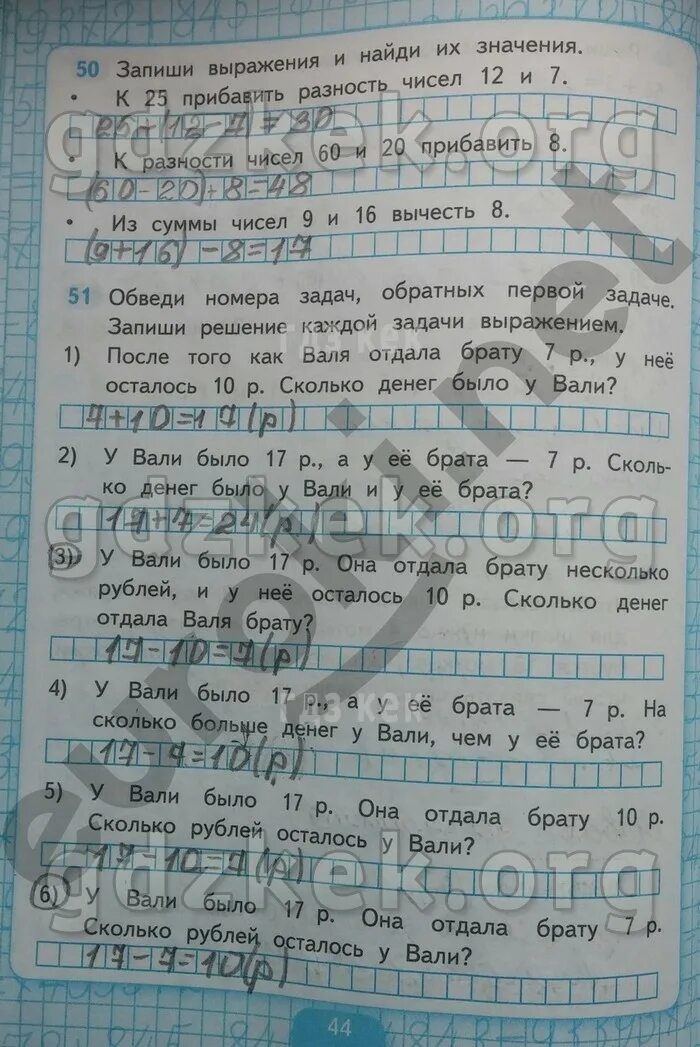 50 Запиши выражения и найди их значения.
• К 25 прибавить разность чисел 12 и 7.
25+(12-7)=30
• К разности чисел 60 и 20 прибавить 8.
(60-20)+8=48
• Из суммы чисел 9 и 16 вычесть 8.
(9+16)-8=17
51 Обведи номера задач, обратных первой задаче.
Запиши решение каждой задачи выражением.
1) После того как Валя отдала брату 7 р., у неё
осталось 10 р. Сколько денег было у Вали?
7+10=17(р)
2) У Вали было 17 р., а у её брата — 7 р. Сколь-
ко денег было у Вали и у её брата?
17+7=24(р)
3) У Вали было 17 р. Она отдала брату несколько
рублей, и у неё осталось 10 р. Сколько денег
отдала Валя брату?
17-10=7(р)
4) У Вали было 17 р., а у её брата — 7 р. На
сколько больше денег у Вали, чем у её брата?
17-7=10(р)
5) У Вали было 17 р. Она отдала брату 10 р.
Сколько рублей осталось у Вали?
17-10=7(р)
6) У Вали было 17 р. Она отдала брату 7 р.
Сколько рублей осталось у Вали?
17-7=10(р)
44
gdzkek.org
gdzkek.org
gdzkek.org
gdzkek.org
гдз кек
гдз кек
euroki.net